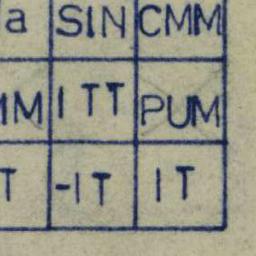 a SIN CMM
MM ITT PUM
T -IT IT